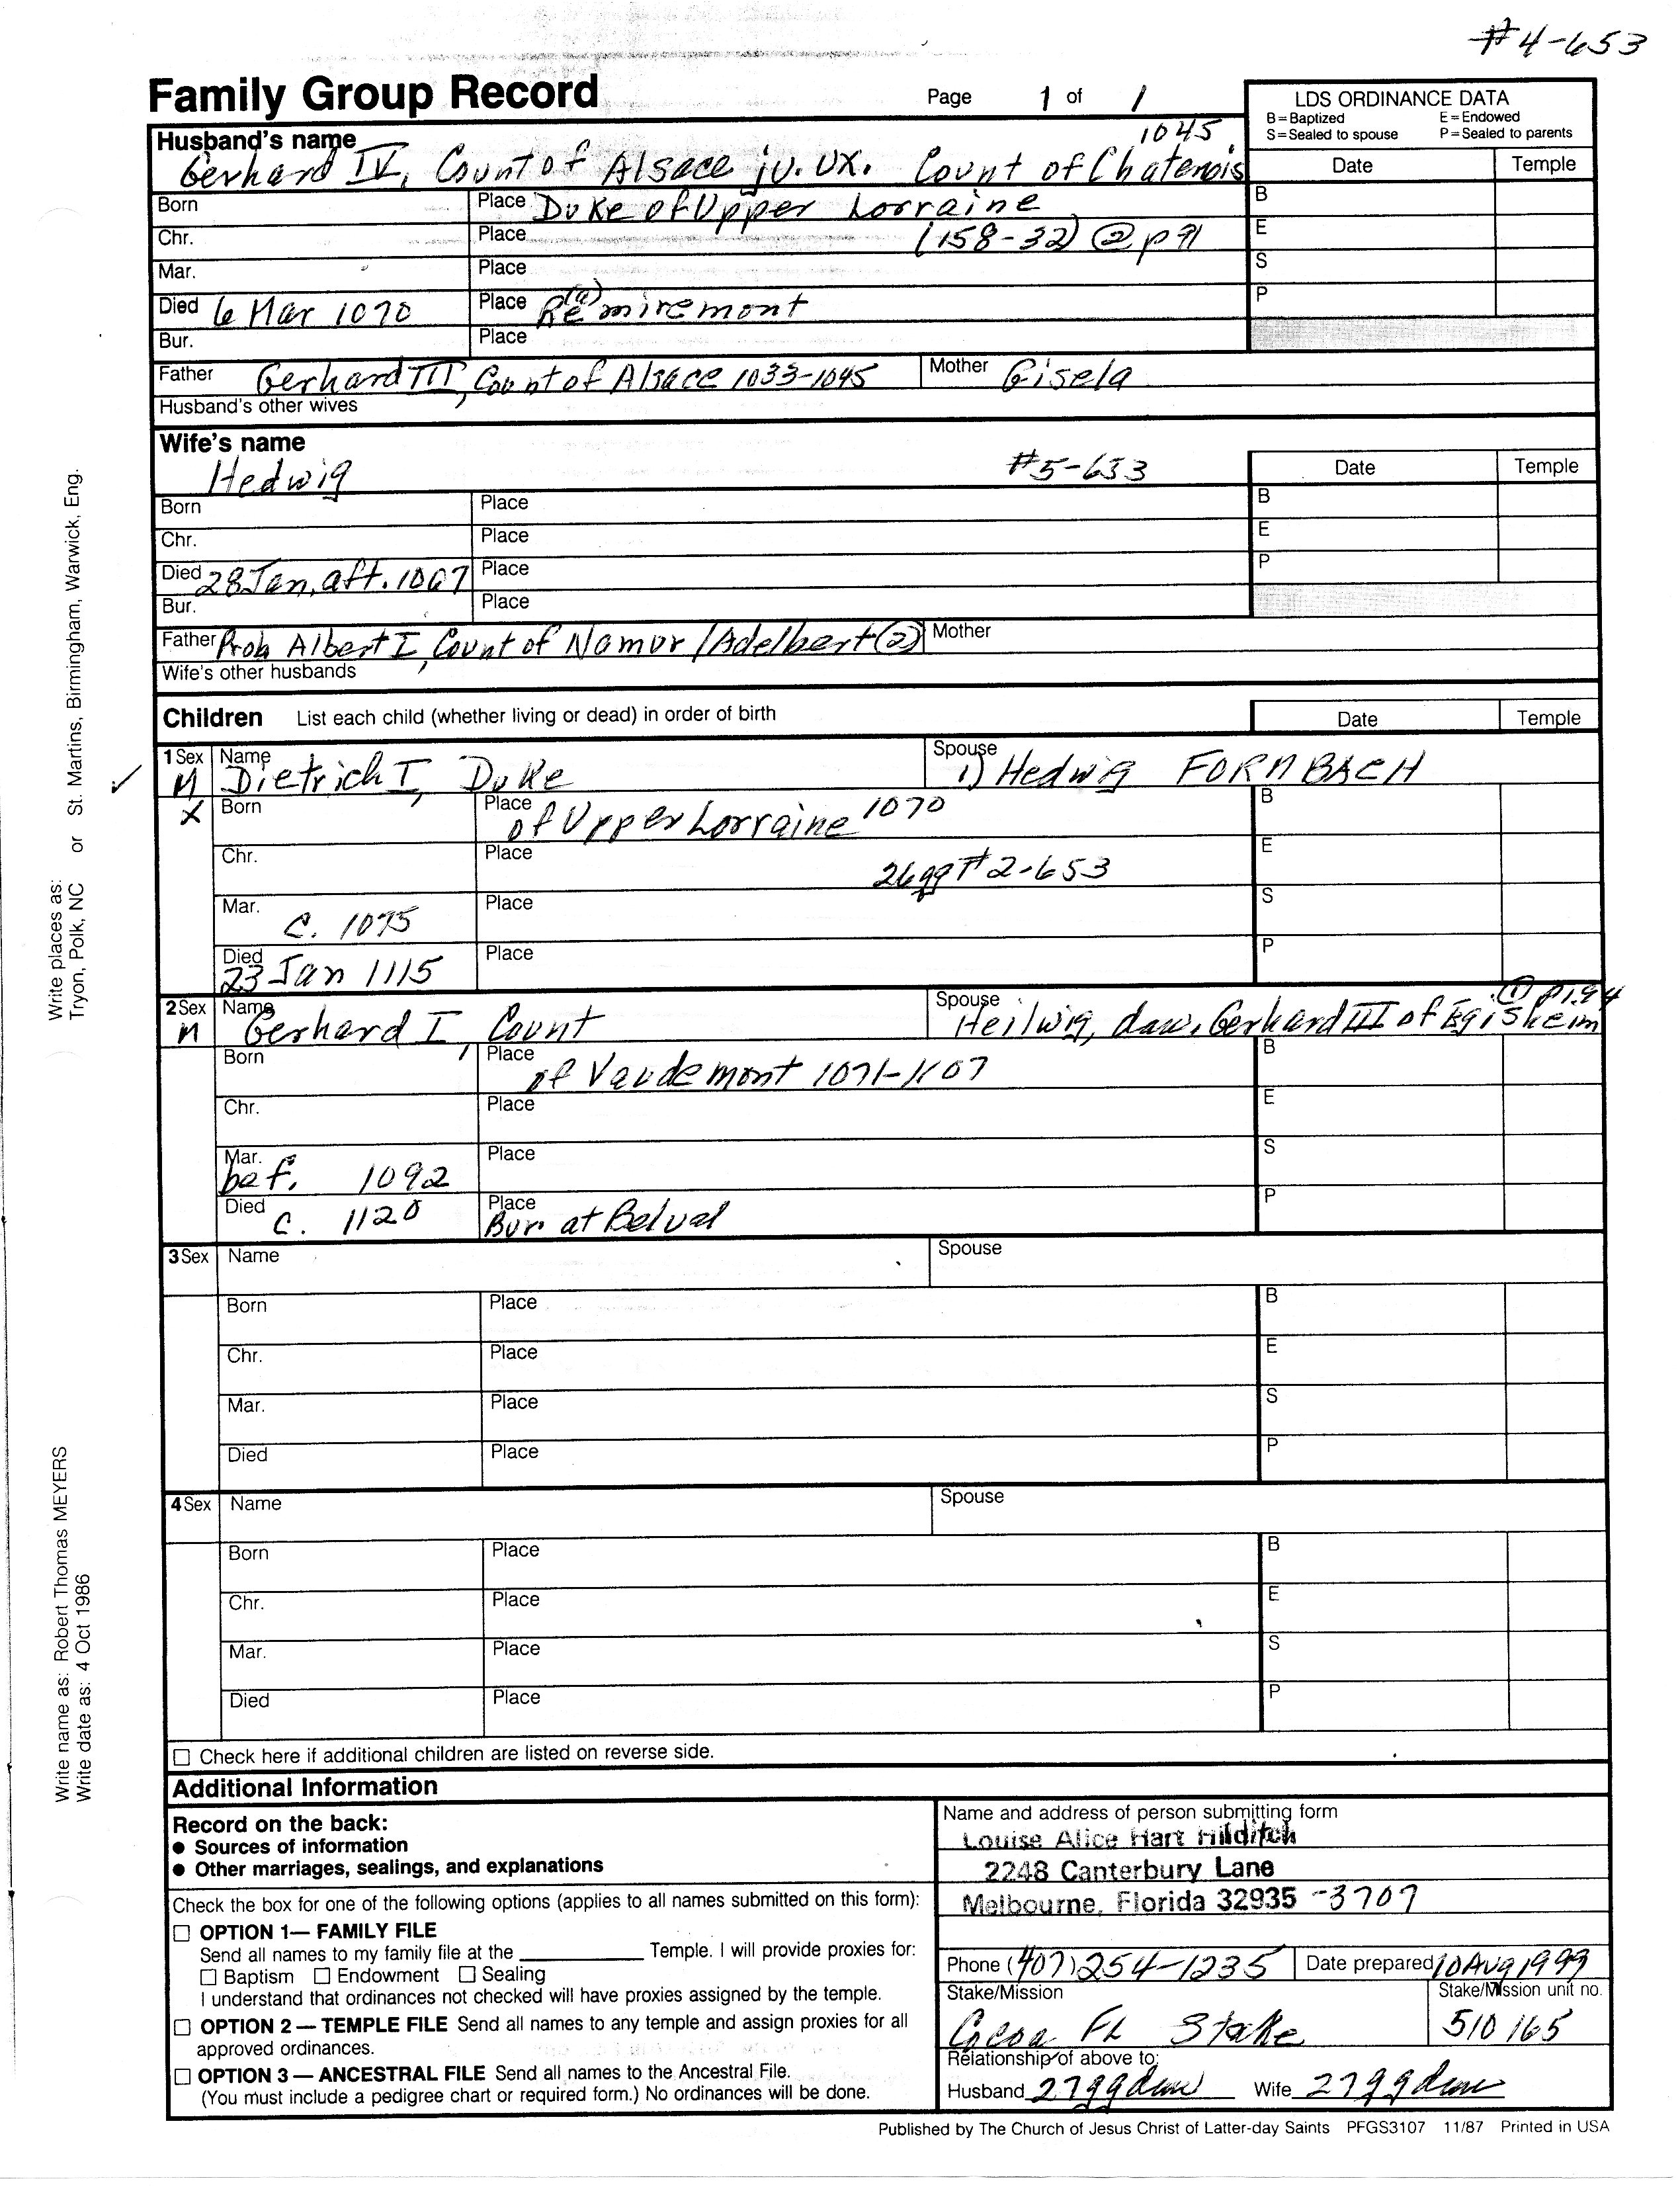 #4-653
Family Group Record
Page 1 of 1
LDS ORDINANCE DATA
B=Baptized E=Endowed
S=Sealed to spouse P=Sealed to parents
Husband's name
1045
Gerhard IV, Count of Alsace jv. ux. Count of Chatenois
Date Temple
Born Place Duke of Upper Lorraine B
Chr. Place (158-32) @ p 91 E
Mar. Place S
Died 6 Mar 1070 Place Re(a)miremont P
Bur. Place
Father Gerhard III, Count of Alsace 1033-1045 Mother Gisela
Husband's other wives
Wife's name
Hedwig #5-653
Date Temple
Born Place B
Chr. Place E
Died 28 Jan, aft. 1067 Place P
Bur. Place
Father Prob Albert I, Count of Namur /Adelbert (2) Mother
Wife's other husbands
Children List each child (whether living or dead) in order of birth Date Temple
1 Sex Name Spouse
M Dietrich I, Duke 1) Hedwig FORMBACH
X Born Place of Upper Lorraine 1070 B
Chr. Place 26gg #2-653 E
Mar. c. 1075 Place S
Died 23 Jan 1115 Place P
2 Sex Name Spouse (1) p1.94
M Gerhard I, Count Heilwig, dau. Gerhard III of Egisheim
Born Place of Vaudemont 1071-1107 B
Chr. Place E
Mar. bef. 1092 Place S
Died c. 1120 Place Bur. at Belval P
3 Sex Name Spouse
Born Place B
Chr. Place E
Mar. Place S
Died Place P
4 Sex Name Spouse
Born Place B
Chr. Place E
Mar. Place S
Died Place P
Check here if additional children are listed on reverse side.
Additional Information
Record on the back:
● Sources of information
● Other marriages, sealings, and explanations
Check the box for one of the following options (applies to all names submitted on this form):
OPTION 1— FAMILY FILE
Send all names to my family file at the ____________ Temple. I will provide proxies for:
Baptism Endowment Sealing
I understand that ordinances not checked will have proxies assigned by the temple.
OPTION 2 — TEMPLE FILE Send all names to any temple and assign proxies for all
approved ordinances.
OPTION 3 — ANCESTRAL FILE Send all names to the Ancestral File.
(You must include a pedigree chart or required form.) No ordinances will be done.
Name and address of person submitting form
Louise Alice Hart Hilditch
2248 Canterbury Lane
Melbourne, Florida 32935 -3707
Phone (407) 254-1235 Date prepared 10 Aug 1999
Stake/Mission Stake/Mission unit no.
Cocoa FL Stake 510165
Relationship of above to:
Husband 27ggdau Wife 27ggdau
Published by The Church of Jesus Christ of Latter-day Saints PFGS3107 11/87 Printed in USA
Write places as: Tryon, Polk, NC or St. Martins, Birmingham, Warwick, Eng.
Write name as: Robert Thomas MEYERS
Write date as: 4 Oct 1986